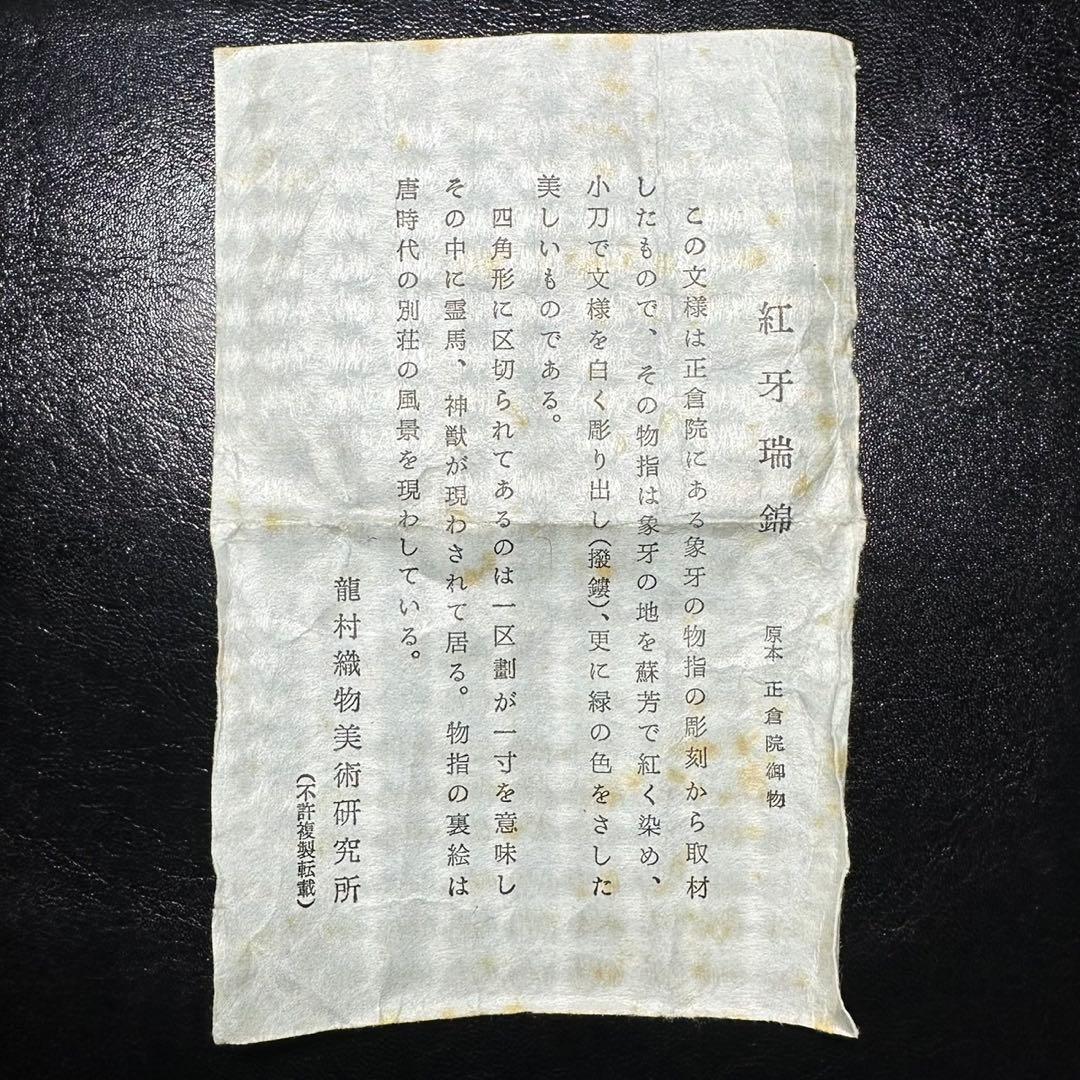 紅牙瑞錦 原本 正倉院御物
この文様は正倉院にある象牙の物指の彫刻から取材
したもので、その物指は象牙の地を蘇芳で紅く染め、
小刀で文様を白く彫り出し(撥鏤)、更に緑の色をさした
美しいものである。
四角形に区切られてあるのは一区劃が一寸を意味し
その中に霊馬、神獣が現わされて居る。物指の裏絵は
唐時代の別荘の風景を現わしている。
龍村織物美術研究所
(不許複製転載)